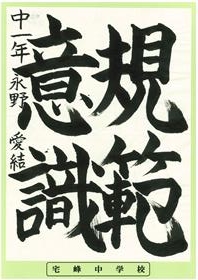 規範
意識
中一年 永野 愛結
宅峰中学校